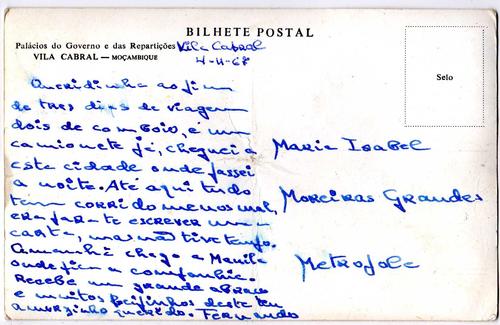 BILHETE POSTAL
Palácios do Governo e das Repartições
VILA CABRAL — MOÇAMBIQUE
Selo
Vila Cabral
4-11-68
Queridinha ao fim
de tres dias de viagem
dois de comboio, e um
camionete já, cheguei a
esta cidade onde passei
a noite. Até aqui tudo
tem corrido menos mal,
era para te escrever uma
carta, mas não tive tempo.
Amanhã chego a
onde fica a companhia.
Recebe um grande abraço
e muitos beijinhos deste teu
amorzinho querido. Fernando
Maria Isabel
Moreiras Grandes
Metropole